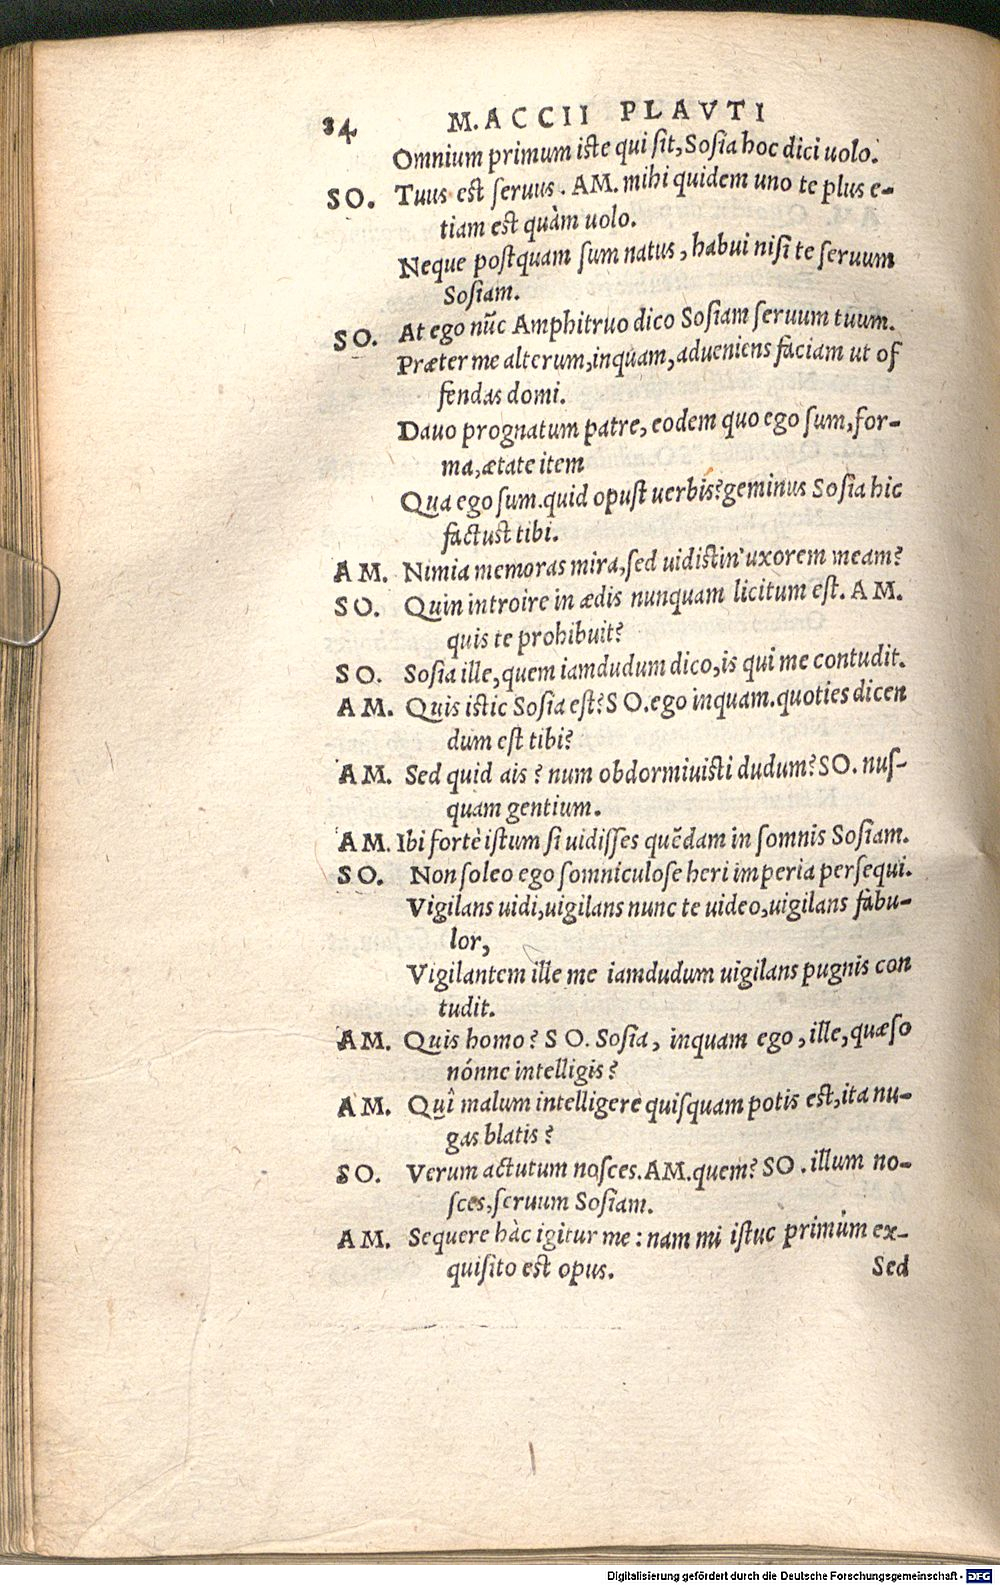 34 M. ACCII PLAVTI
Omnium primum iste qui sit, Sosia hoc dici uolo.
SO. Tuus est seruus. AM. mihi quidem uno te plus e-
tiam est quàm uolo.
Neque postquam sum natus, habui nisi te seruum
Sosiam.
SO. At ego nūc Amphitruo dico Sosiam seruum tuum.
Præter me alterum, inquam, adueniens faciam ut of
fendas domi.
Dauo prognatum patre, eodem quo ego sum, for-
ma, ætate item
Qua ego sum. quid opust uerbis? geminus Sosia hic
factust tibi.
AM. Nimia memoras mira, sed uidistin' uxorem meam?
SO. Quin introire in ædis nunquam licitum est. AM.
quis te prohibuit?
SO. Sosia ille, quem iamdudum dico, is qui me contudit.
AM. Quis istic Sosia est? SO. ego inquam. quoties dicen
dum est tibi?
AM. Sed quid ais? num obdormiuisti dudum? SO. nus-
quam gentium.
AM. Ibi fortè istum si uidisses quēdam in somnis Sosiam.
SO. Non soleo ego somniculose heri imperia persequi.
Vigilans uidi, uigilans nunc te uideo, uigilans fabu-
lor,
Vigilantem ille me iamdudum uigilans pugnis con
tudit.
AM. Quis homo? SO. Sosia, inquam ego, ille, quæso
nónne intelligis?
AM. Quî malum intelligere quisquam potis est, ita nu-
gas blatis?
SO. Verum actutum nosces. AM. quem? SO. illum no-
sces, seruum Sosiam.
AM. Sequere hàc igitur me: nam mi istuc primùm ex-
quisito est opus.
Sed
Digitalisierung gefördert durch die Deutsche Forschungsgemeinschaft - DFG